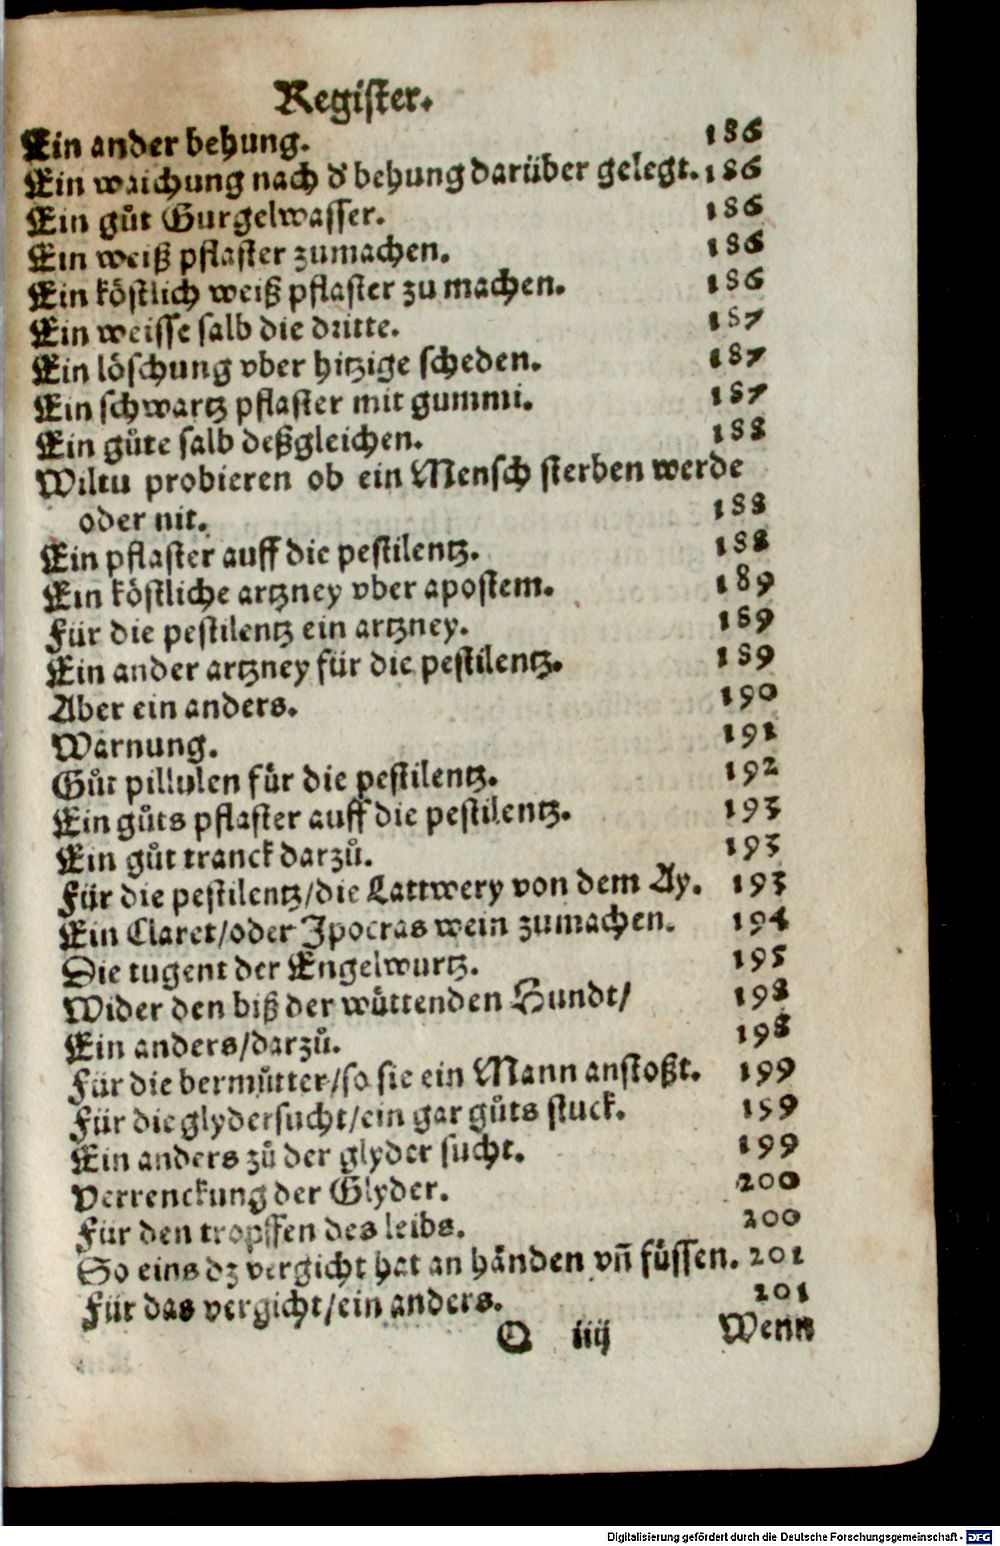 Register.
Ein ander behung. 186
Ein waichung nach d' behung darüber gelegt. 186
Ein gůt Gurgelwasser. 186
Ein weiß pflaster zumachen. 186
Ein köstlich weiß pflaster zu machen. 186
Ein weisse salb die dritte. 187
Ein löschung vber hitzige scheden. 187
Ein schwartz pflaster mit gummi. 187
Ein gůte salb deßgleichen. 188
Wiltu probieren ob ein Mensch sterben werde
oder nit. 188
Ein pflaster auff die pestilentz. 188
Ein köstliche artzney vber apostem. 189
Für die pestilentz ein artzney. 189
Ein ander artzney für die pestilentz. 189
Aber ein anders. 190
Warnung. 191
Gůt pillulen für die pestilentz. 192
Ein gůts pflaster auff die pestilentz. 193
Ein gůt tranck darzů. 193
Für die pestilentz/die Lattwery von dem Ay. 193
Ein Claret/oder Ipocras wein zumachen. 194
Die tugent der Engelwurtz. 195
Wider den biß der wüttenden Hundt/ 198
Ein anders/darzů. 198
Für die bermůtter/so sie ein Mann anstoßt. 199
Für die glydersucht/ein gar gůts stuck. 199
Ein anders zů der glyder sucht. 199
Verrenckung der Glyder. 200
Für den tropffen des leibs. 200
So eins dz vergicht hat an händen vñ füssen. 201
Für das vergicht/ein anders. 201
Q iiij Wenn
Digitalisierung gefördert durch die Deutsche Forschungsgemeinschaft - DFG